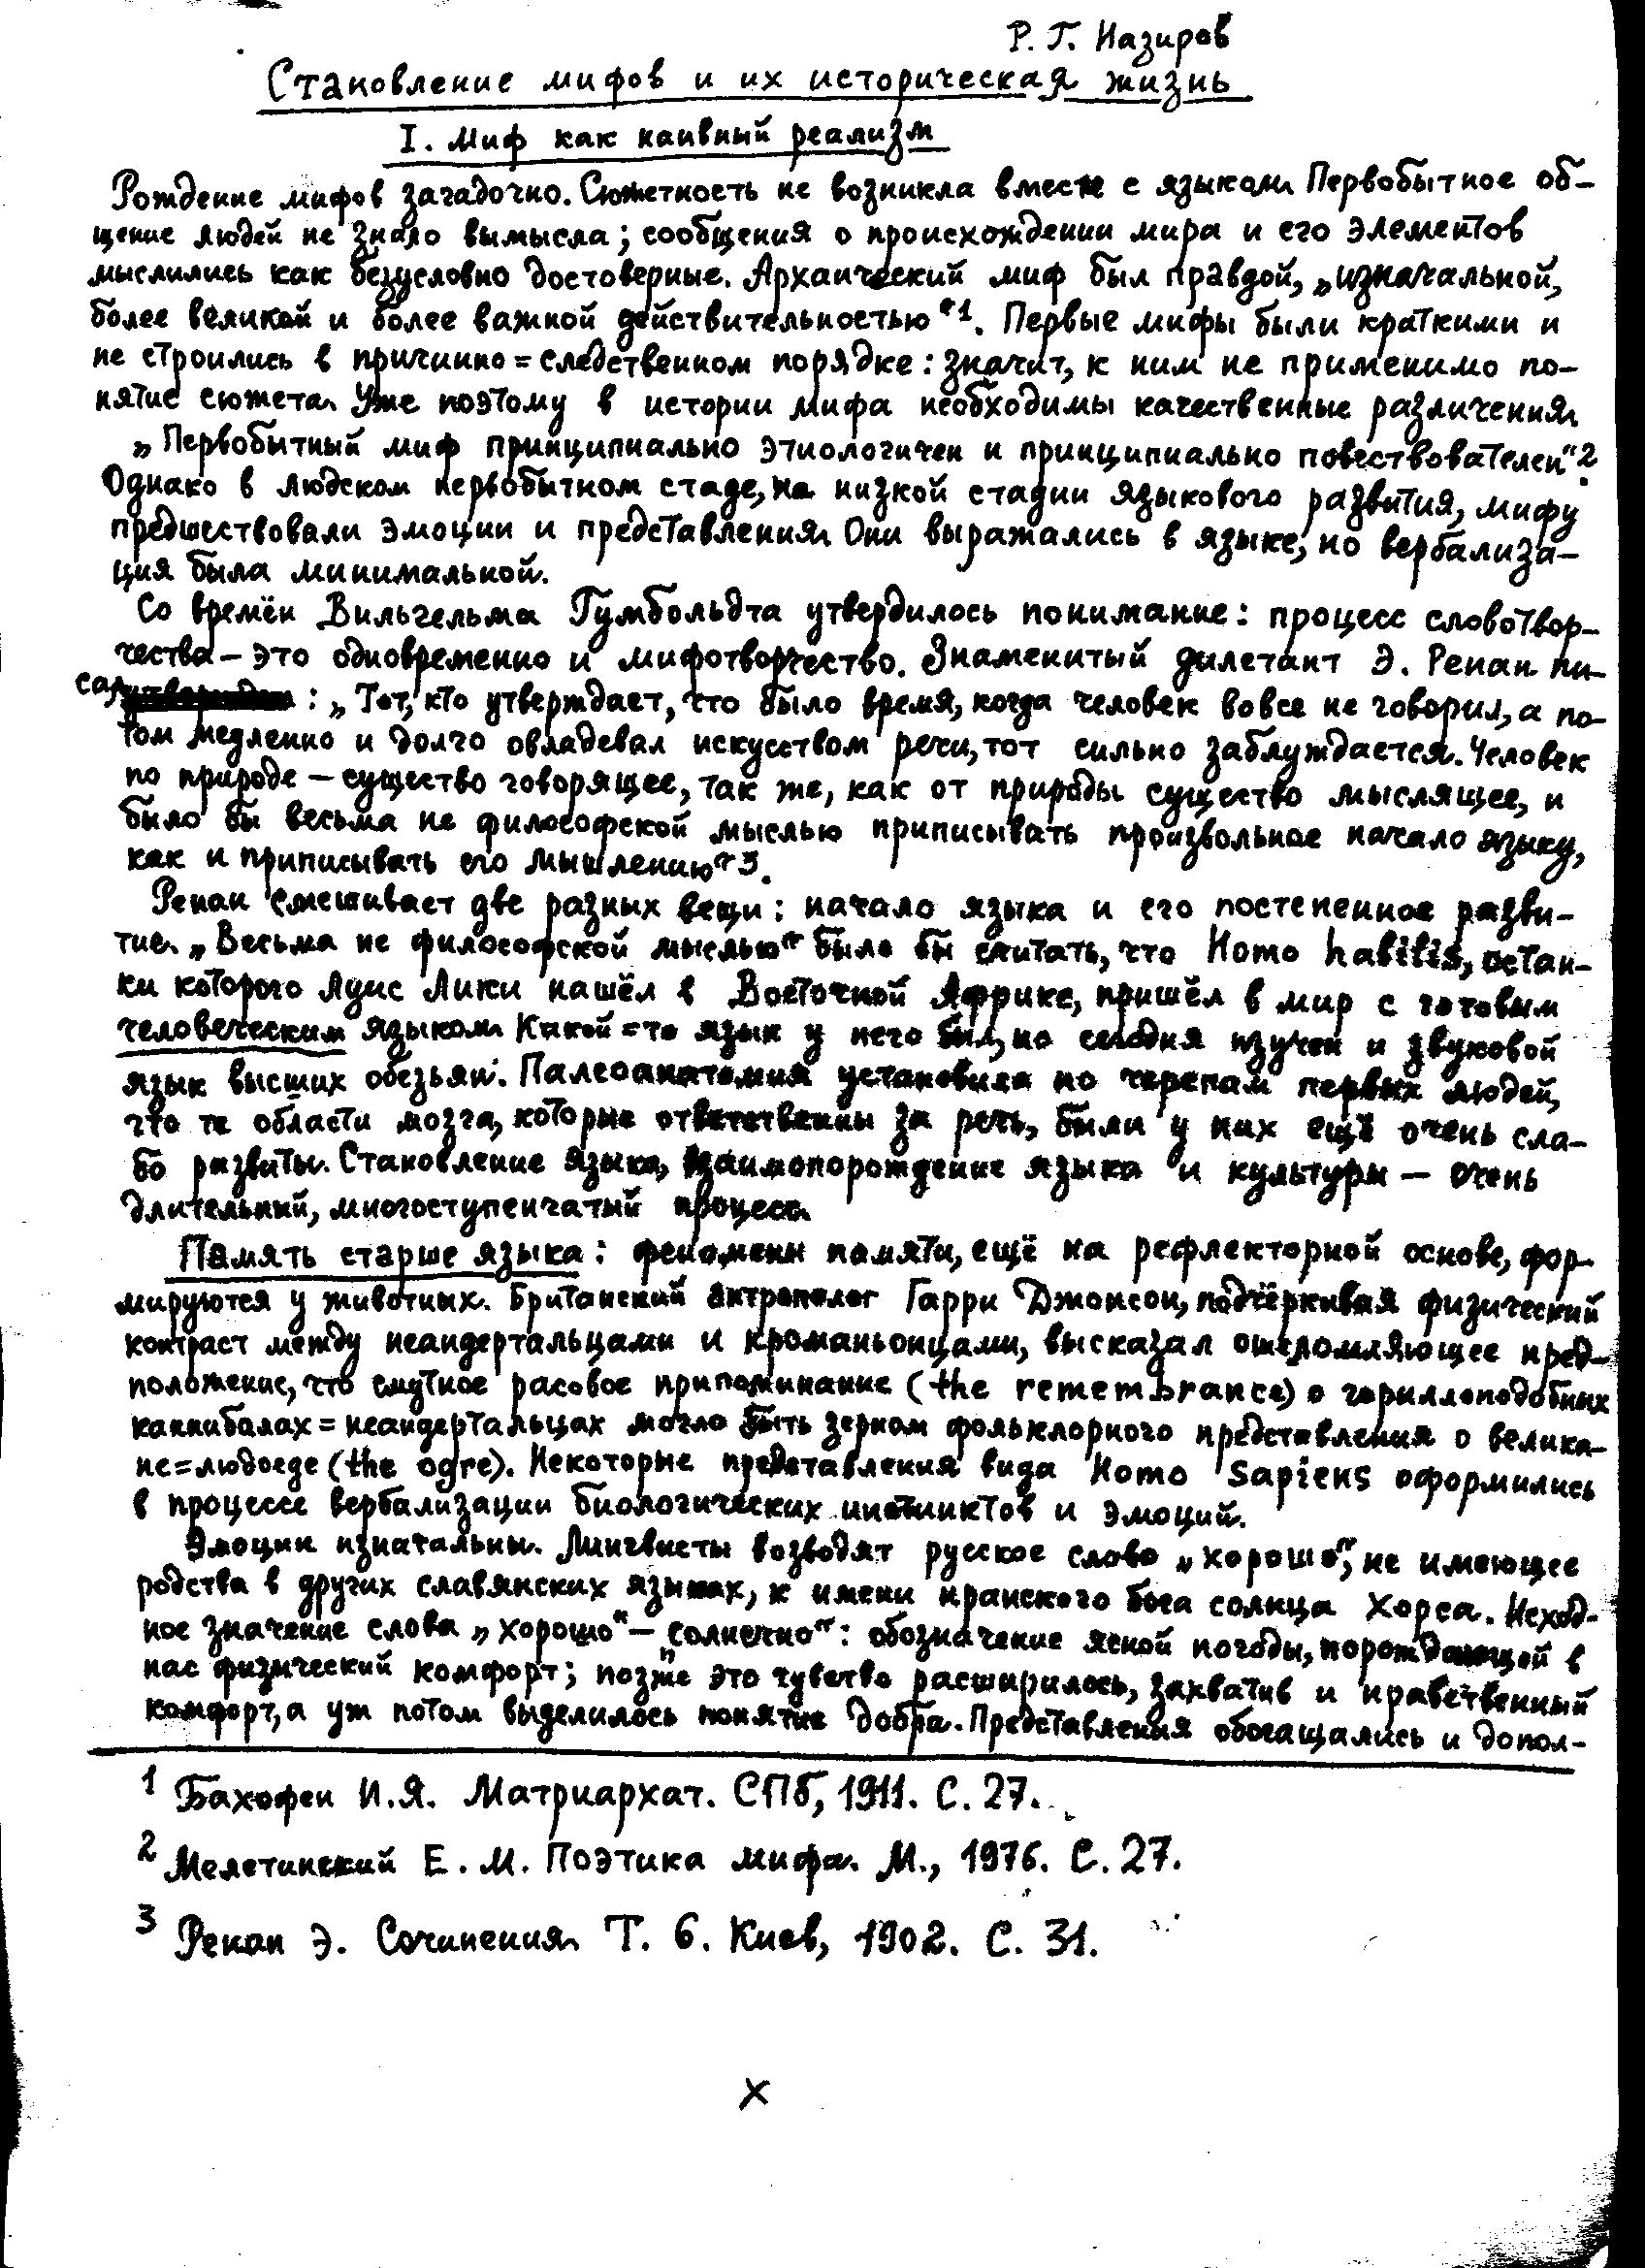 Р. Г. Назиров
Становление мифов и их историческая жизнь
I. Миф как наивный реализм
Рождение мифов загадочно. Сюжетность не возникла вместе с языком. Первобытное об-
щение людей не знало вымысла; сообщения о происхождении мира и его элементов
мыслились как безусловно достоверные. Архаический миф был правдой, „изначальной,
более великой и более важной действительностью“1. Первые мифы были краткими и
не строились в причинно=следственном порядке: значит, к ним не применимо по-
нятие сюжета. Уже поэтому в истории мифа необходимы качественные различения.
„Первобытный миф принципиально этиологичен и принципиально повествователен“2.
Однако в людском первобытном стаде, на низкой стадии языкового развития, мифу
предшествовали эмоции и представления. Они выражались в языке, но вербализа-
ция была минимальной.
Со времён Вильгельма Гумбольдта утвердилось понимание: процесс словотвор-
чества – это одновременно и мифотворчество. Знаменитый дилетант Э. Ренан пи-
сал: „Тот, кто утверждает, что было время, когда человек вовсе не говорил, а по-
том медленно и долго овладевал искусством речи, тот сильно заблуждается. Человек
по природе – существо говорящее, так же, как от природы существо мыслящее, и
было бы весьма не философской мыслью приписывать произвольное начало языку,
как и приписывать его мышлению“3.
Ренан смешивает две разных вещи: начало языка и его постепенное разви-
тие. „Весьма не философской мыслью“ было бы считать, что Homo habilis, остан-
ки которого Луис Лики нашёл в Восточной Африке, пришёл в мир с готовым
человеческим языком. Какой=то язык у него был, но сегодня изучен и звуковой
язык высших обезьян. Палеоанатомия установила по черепам первых людей,
что те области мозга, которые ответственны за речь, были у них ещё очень сла-
бо развиты. Становление языка, взаимопорождение языка и культуры – очень
длительный, многоступенчатый процесс.
Память старше языка: феномены памяти, ещё на рефлекторной основе, фор-
мируются у животных. Британский антрополог Гарри Джонсон, подчёркивая физический
контраст между неандертальцами и кроманьонцами, высказал ошеломляющее пред-
положение, что смутное расовое припоминание (the remembrance) о гориллоподобных
каннибалах=неандертальцах могло быть зерном фольклорного представления о велика-
не=людоеде (the ogre). Некоторые представления вида Homo Sapiens оформились
в процессе вербализации биологических инстинктов и эмоций.
Эмоции изначальны. Лингвисты возводят русское слово „хорошо“, не имеющее
родства в других славянских языках, к имени иранского бога солнца Хорса. Исход-
ное значение слова „хорошо“ – „солнечно“: обозначение ясной погоды, порождающей в
нас физический комфорт; позже это чувство расширилось, захватив и нравственный
комфорт, а уж потом выделилось понятие добра. Представления обогащались и допол-
1 Бахофен И.Я. Матриархат. СПб, 1911. С. 27.
2 Мелетинский Е. М. Поэтика мифа. М., 1976. С. 27.
3 Ренан Э. Сочинения. Т. 6. Киев, 1902. С. 31.
х